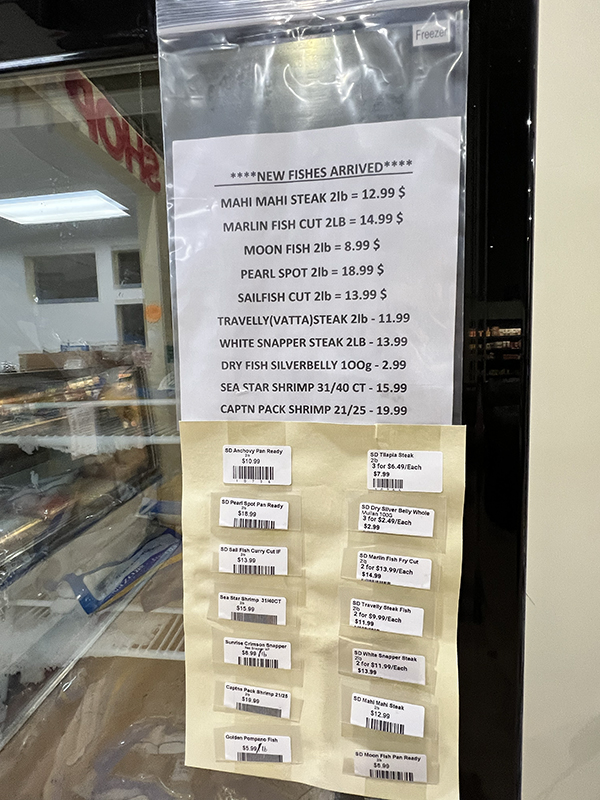 Freezer
SHOP
****NEW FISHES ARRIVED****
MAHI MAHI STEAK 2lb = 12.99 $
MARLIN FISH CUT 2LB = 14.99 $
MOON FISH 2lb = 8.99 $
PEARL SPOT 2lb = 18.99 $
SAILFISH CUT 2lb = 13.99 $
TRAVELLY(VATTA)STEAK 2lb - 11.99
WHITE SNAPPER STEAK 2LB - 13.99
DRY FISH SILVERBELLY 100g - 2.99
SEA STAR SHRIMP 31/40 CT - 15.99
CAPTN PACK SHRIMP 21/25 - 19.99
SD Anchovy Pan Ready
2lb
$10.99
SD Pearl Spot Pan Ready
2lb
$18.99
SD Sail Fish Curry Cut IF
2lb
$13.99
Sea Star Shrimp 31/40CT
2lb
$15.99
Sunrise Crimson Snapper
$8.99/lb
Captns Pack Shrimp 21/25
2lb
$19.99
Golden Pompano Fish
$5.99/lb
SD Tilapia Steak
2lb
3 for $6.49/Each
$7.99
SD Dry Silver Belly Whole
Mullan 100G
3 for $2.49/Each
$2.99
SD Marlin Fish Fry Cut
2lb
2 for $13.99/Each
$14.99
SD Travelly Steak Fish
2lb
2 for $9.99/Each
$11.99
SD White Snapper Steak
2lb
2 for $11.99/Each
$13.99
SD Mahi Mahi Steak
2lb
$12.99
SD Moon Fish Pan Ready
2lb
$8.99